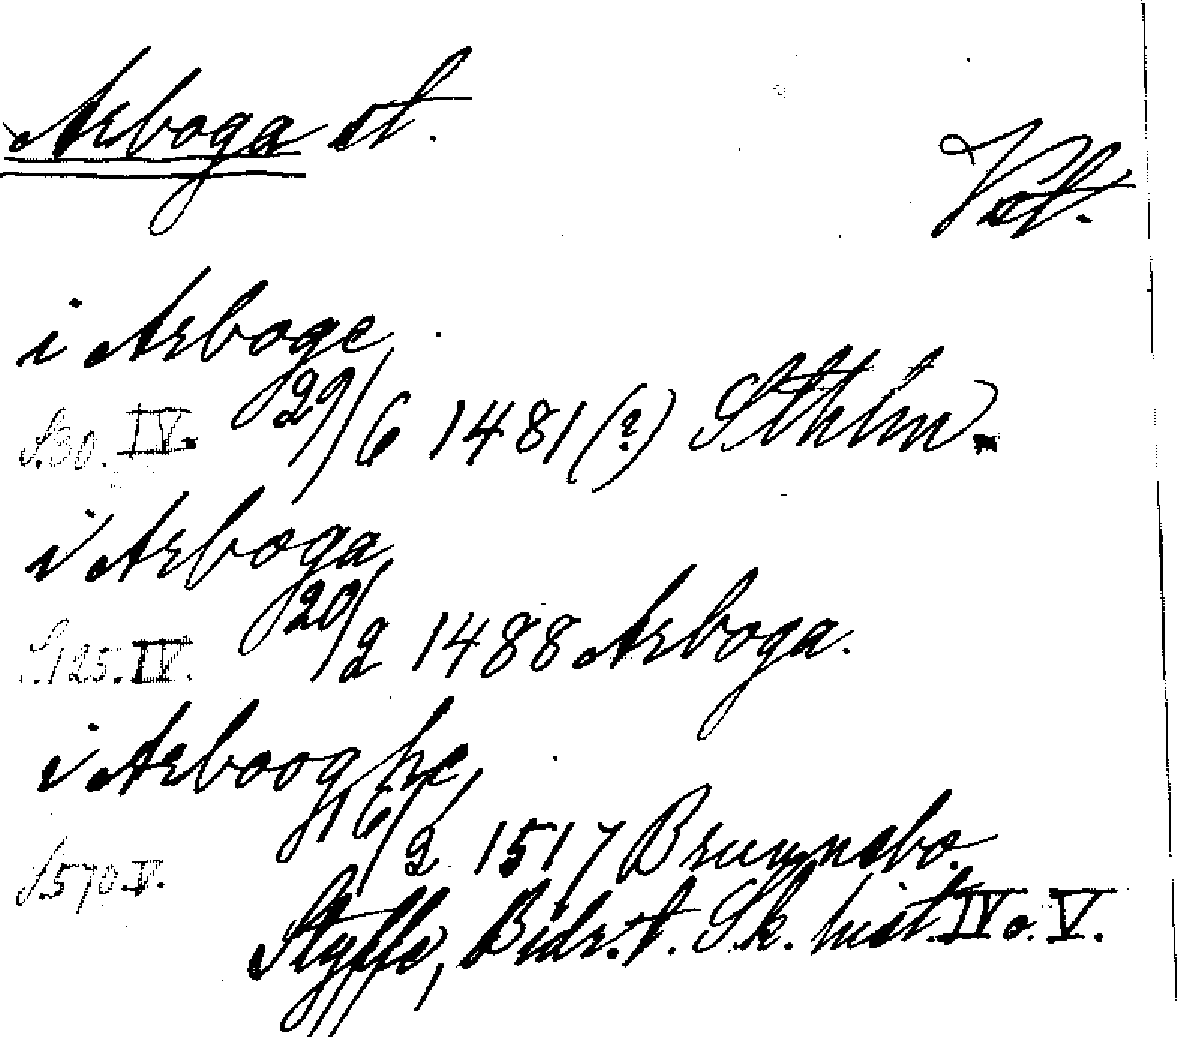 Arboga st.
Vstm.
i Arboge
S.30. IV. 29/6 1481(?) Sthlm.
i Arboga
S.125. IV. 20/2 1488 Arboga.
i Arbooghe
S.570. V. 16/2 1517 Brunnsbo.
Styffe, Bidr. t. Sk. hist. IV o. V.